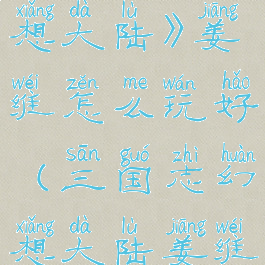 xiǎng dà lù jiāng
想大陆》姜
wéi zěn me wán hǎo
维怎么玩好
sān guó zhì huàn
（三国志幻
xiǎng dà lù jiāng wéi
想大陆姜维